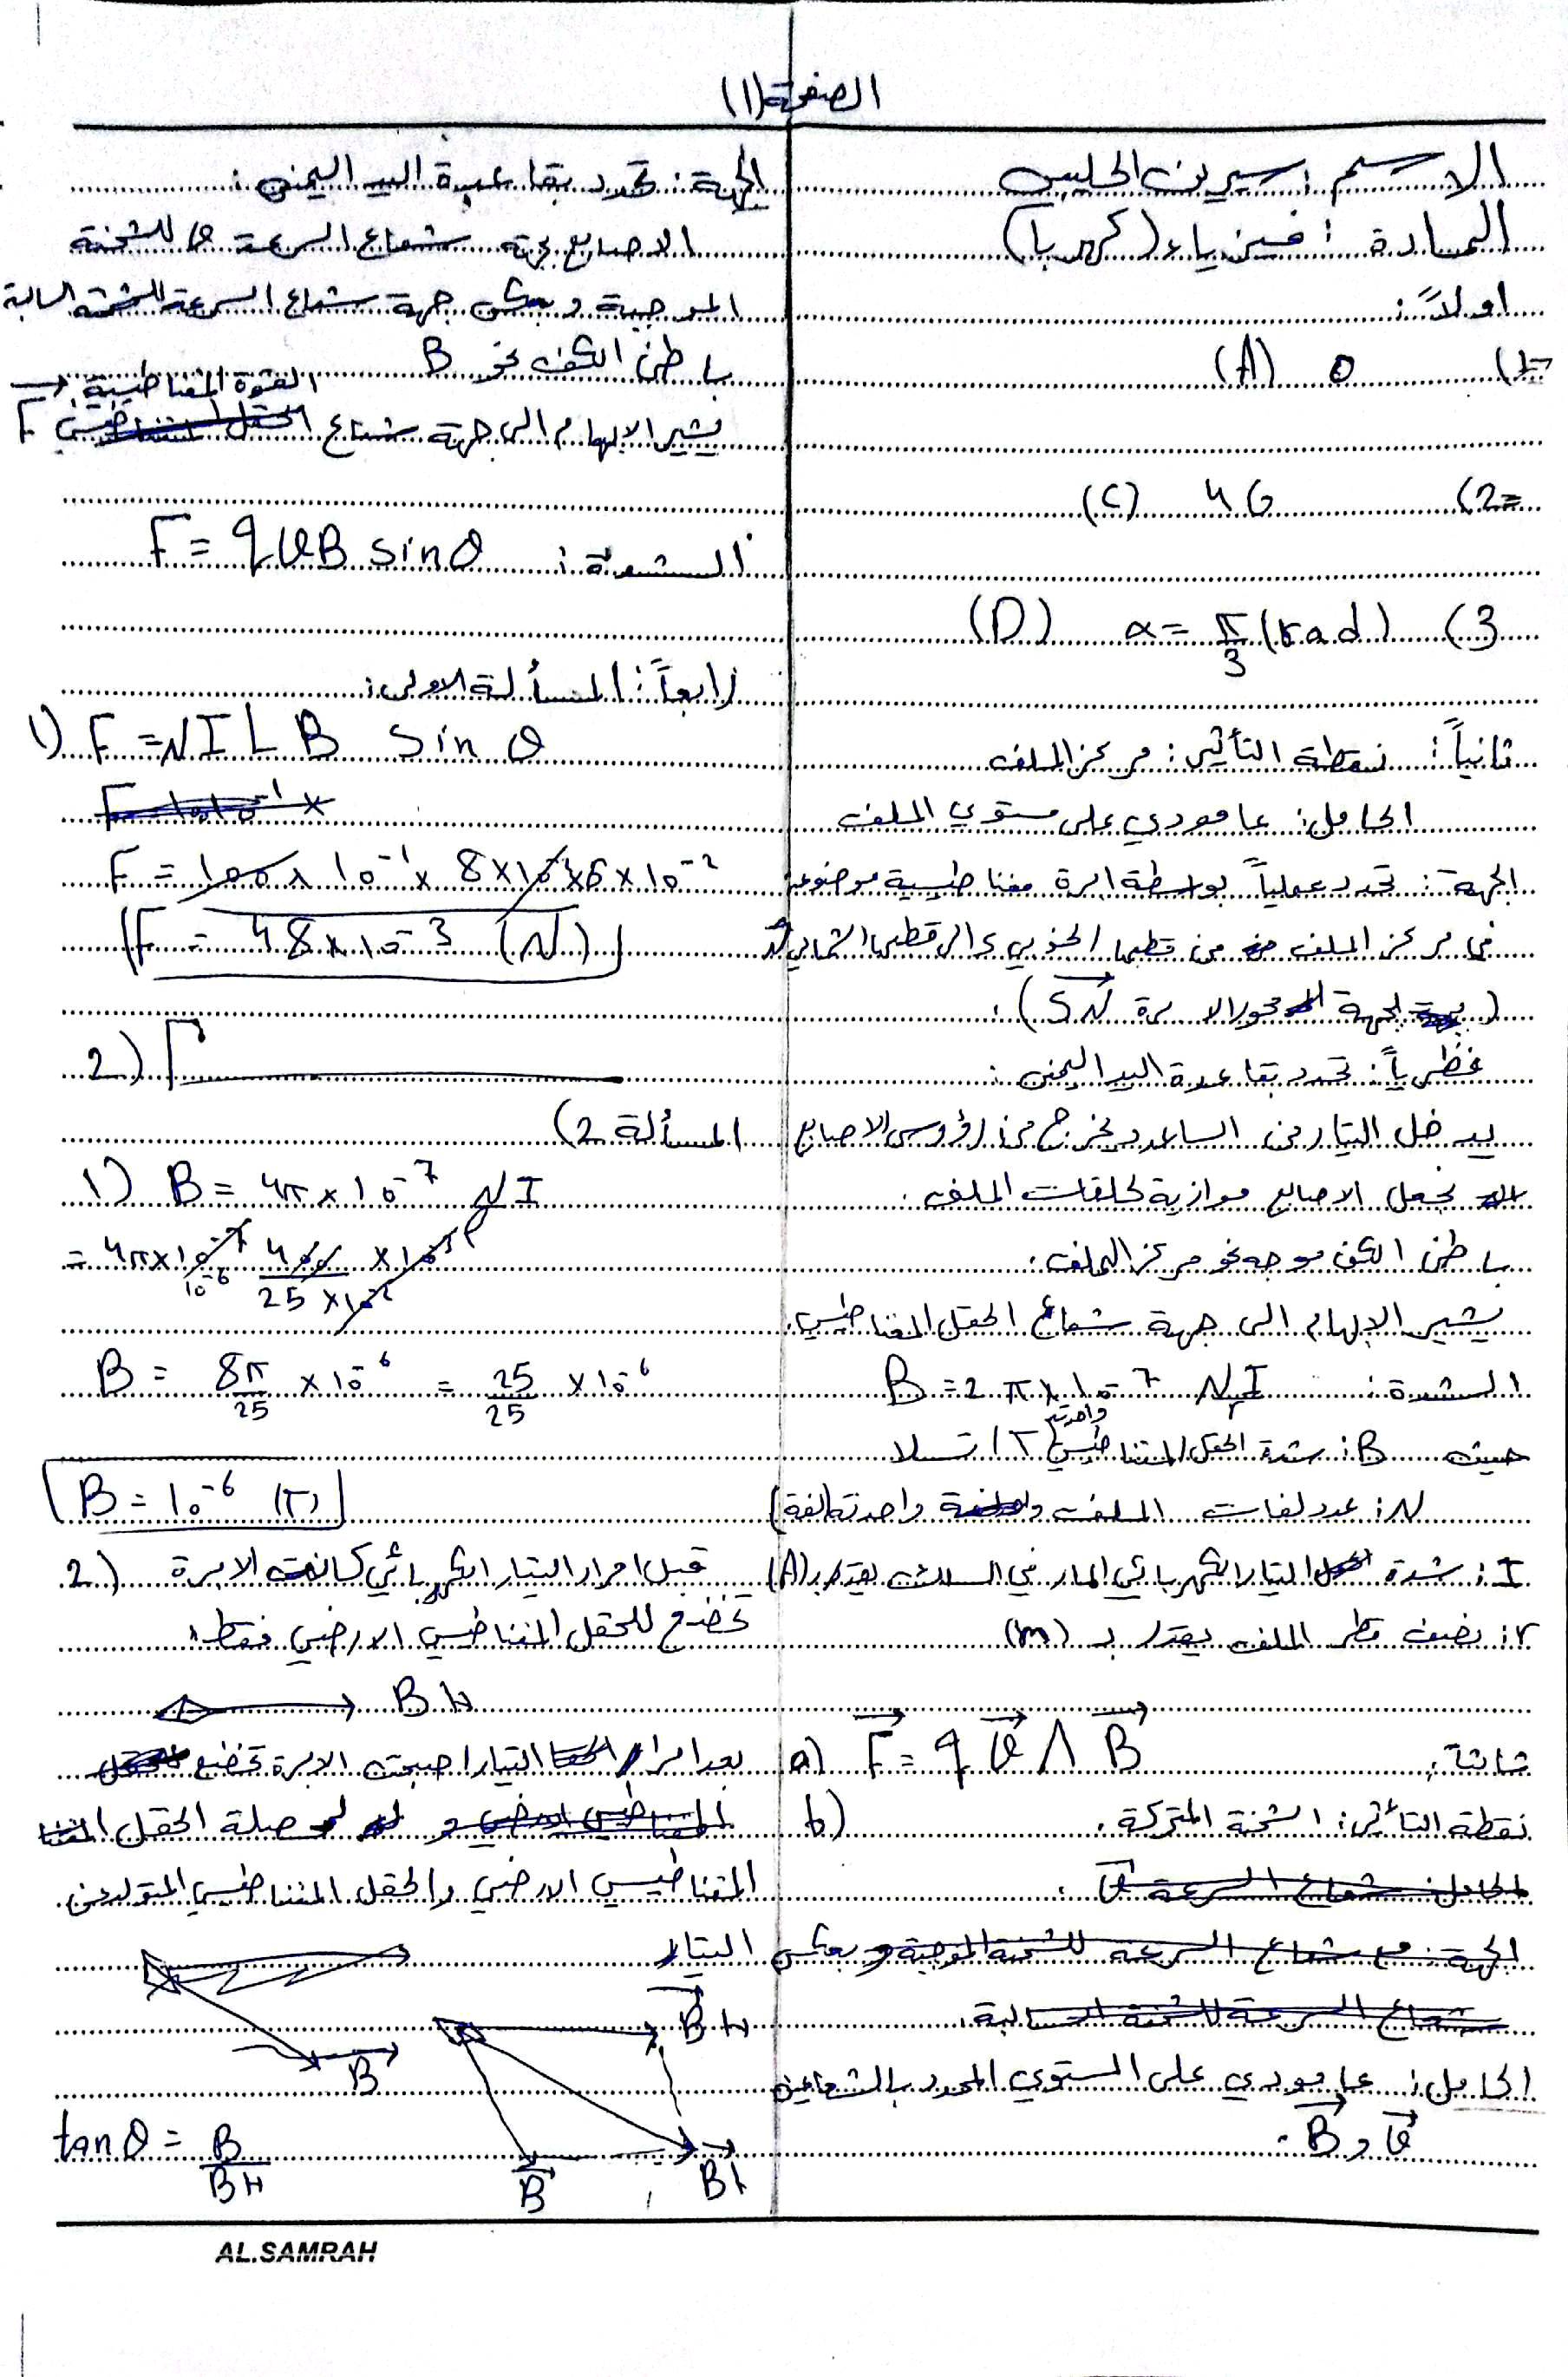 الصفحة (1)
الاسم : سيرين الحليبي
المادة : فيزياء (كهربا)
اولاً :
1) 0 (A)
2) 4G (C)
3) α = π/3 (rad) (D)
ثانياً : نقطة التأثير : مركز الملف
الحامل : عامودي على مستوي الملف
الجهة : تحدد عملياً بواسطة ابرة مغناطيسية موضوعة
في مركز الملف من قطبها الجنوبي الى قطبها الشمالي
(لجهة محور الابرة SN) .
نظرياً : تحدد بقاعدة اليد اليمنى :
يدخل التيار من الساعد ويخرج من رؤوس الاصابع
نجعل الاصابع موازية لحلقات الملف .
باطن الكف موجه نحو مركز الملف .
يشير الابهام الى جهة شعاع الحقل المغناطيسي .
الشدة : B = 2π × 10⁻⁷ NI/r
حيث B : شدة الحقل المغناطيسي واحدته (T) تسلا
N : عدد لفات الملف واحدته (لفة)
I : شدة التيار الكهربائي المار في السلك يقدر بـ (A)
r : نصف قطر الملف يقدر بـ (m)
ثالثاً : a) F = q v Λ B
b) نقطة التأثير : الشحنة المتحركة .
الحامل : شعاع السرعة v .
الجهة : مع شعاع السرعة للشحنة الموجبة وبعكس
شعاع السرعة للشحنة السالبة .
الحامل : عامودي على المستوي المحدد بالشعاعين
v و B .
الجهة : تحدد بقاعدة اليد اليمنى :
الاصابع بجهة شعاع السرعة v للشحنة
الموجبة وبعكس جهة شعاع السرعة للشحنة السالبة
باطن الكف نحو B
القوة المغناطيسية
يشير الابهام الى جهة شعاع الحقل المغناطيسي F
الشدة : F = qvB sinθ
رابعاً : المسألة الاولى :
1) F = NILB sin θ
F = 10 10⁻¹ ×
F = 100 × 10⁻¹ × 8 × 10 × 6 × 10⁻²
F = 48 × 10⁻³ (N)
2) Γ
المسألة 2)
1) B = 4π × 10⁻⁷ NI
= 4π × 10⁻⁷ 400/25 × 10⁻² ×
10⁻⁶
B = 8π/25 × 10⁻⁶ = 25/25 × 10⁻⁶
B = 10⁻⁶ (T)
2) قبل امرار التيار الكهربائي كانت الابرة
تخضع للحقل المغناطيسي الارضي فقط .
BH
بعد امرار التيار اصبحت الابرة تخضع
لمحصلة الحقل
المغناطيسي الارضي والحقل المغناطيسي المتولد عن
التيار
BH
B
B
Bt
tan θ = B/BH
AL.SAMRAH